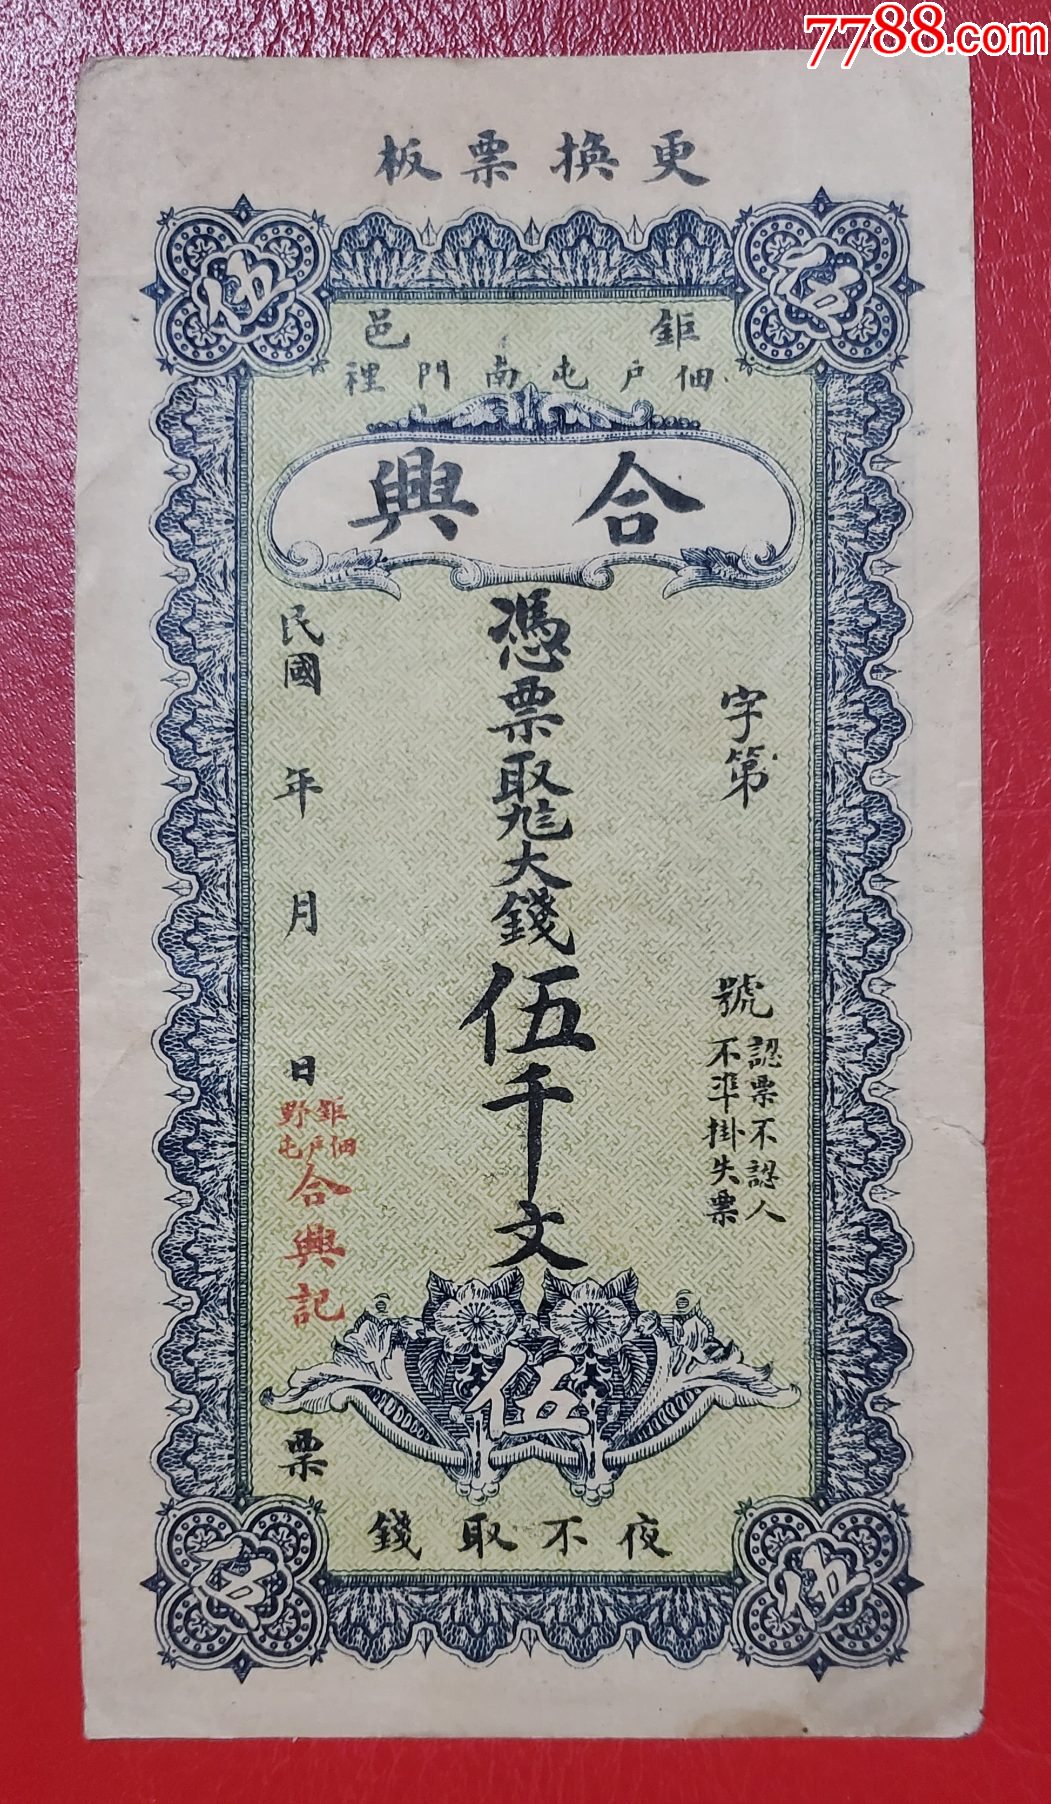 7788.com
更換票板
伍
伍
鉅邑
佃戶屯南門裡
合興
字第
號
認票不認人
不準掛失票
憑票取大錢伍千文
民國
年
月
日
鉅野
佃戶屯
合興記
票
伍
夜不取錢
伍
伍